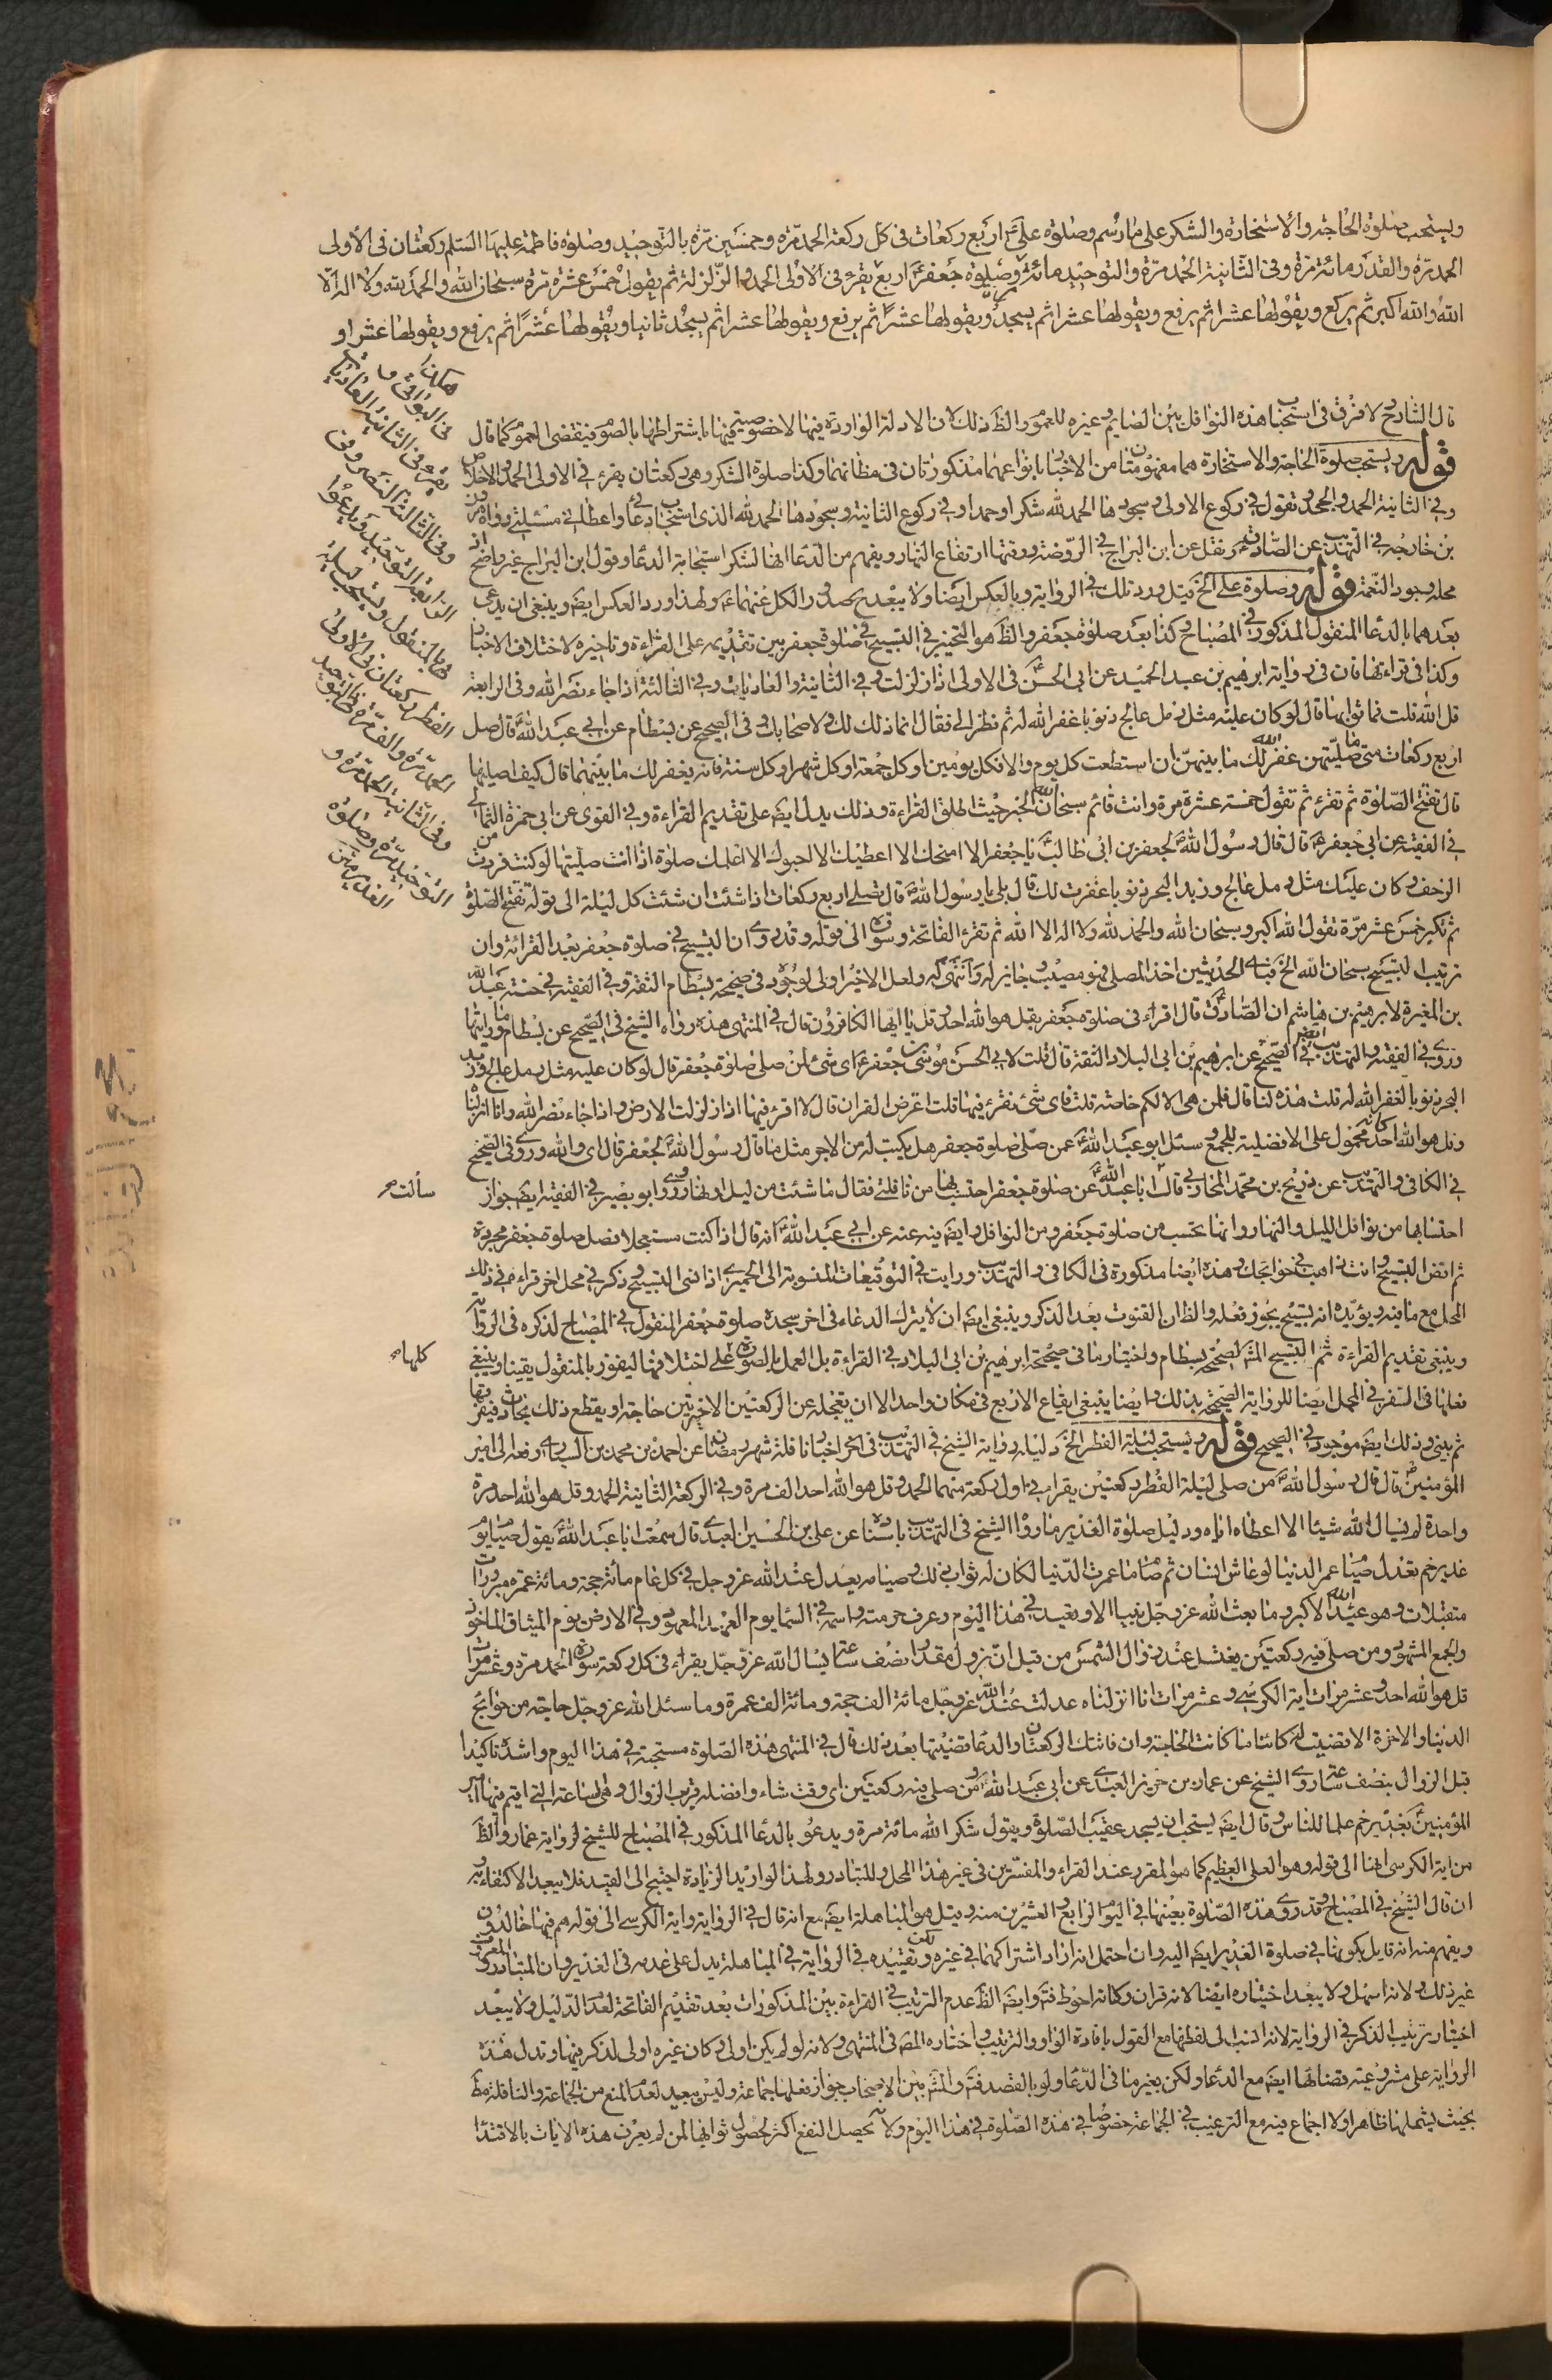 ويستحب صلوة الحاجة والاستخارة والشكر على ما رسم وصلوة علي ع اربع ركعات في كل ركعة الحمد مرة وخمسين مرة بالتوحيد وصلوة فاطمة عليها السلم ركعتان في الاولى
الحمد مرة والقدر مائة مرة وفي الثانية الحمد مرة والتوحيد مائة وصلوة جعفر ع اربع يقرء في الاولى الحمد والزلزلة ثم يقول خمس عشرة مرة سبحان الله والحمد لله ولا اله الا
الله والله اكبر ثم يركع ويقولها عشرا ثم يرفع ويقولها عشرا ثم يسجد ويقولها عشرا ثم يرفع ويقولها عشرا ثم يسجد ثانيا ويقولها عشرا ثم يرفع ويقولها عشرا و
هكذا
في البواقي و
يقرء في الثانية العاديات
وفي الثالثة النصر وفي
الرابعة التوحيد ويدعوا
بالمنقول ويستحب ليلة
الفطر ركعتان في الاولى
الحمد مرة والف مرة بالتوحيد
وفي الثانية الحمد مرة و
التوحيد مرة وصلوة
الغدير
قال الشارح لا فرق في استحباب هذه النوافل بين الصايم وغيره للعموم والظ ذلك لان الادلة الواردة فيها لا خصوصية فيها باشتراطها بالصوم فيقتضى العموم كما قال
قوله ويستحب صلوة الحاجة والاستخارة هما مفهومتان من الاخبار بانواعهما مذكورتان في مظانهما وكذا صلوة الشكر وهى ركعتان يقرء في الاولى الحمد والاخلاص
وفي الثانية الحمد والجحد وتقول في ركوع الاولى وسجودها الحمد لله شكرا وحمدا وفي ركوع الثانية وسجودها الحمد لله الذى استجاب دعائى واعطانى مسئلتى رواه هرون
بن خارجة في التهذيب عن الصادق ع ونقل عن ابن البراج في الروضة ووقتها ارتفاع النهار ويفهم من الدعا انها لشكر استجابة الدعا وقول ابن البراج غير واضح اذ
محله وجود النعمة قوله وصلوة على الخ قيل ورد تلك في الرواية وبالعكس ايضا ولا يبعد بصدور الكل عنهما ع ولهذا ورد العكس ايضا وينبغى ان يدعى
بعدهما بالدعا المنقول المذكور في المصباح وكذا بعد صلوة جعفر والظ هو التخيير في التسبيح في صلوة جعفر بين تقديمه على القراءة وتاخيره لاختلاف الاخبار
وكذا في قراءتها فان في رواية ابرهيم بن عبد الحميد عن ابى الحسن ع في الاولى اذا زلزلت وفي الثانية والعاديات وفي الثالثة اذا جاء نصر الله وفي الرابعة
قل الله قلت فما ثوابها قال لو كان عليه مثل رمل عالج ذنوبا غفر الله له ثم نظر الى فقال انما ذلك لك ولاصحابك وفي الصحيح عن بسطام عن ابى عبد الله ع قال صل
اربع ركعات متى ما صليتهن غفر الله لك ما بينهن ان استطعت كل يوم والا فكل يومين او كل جمعة او كل شهر او كل سنة فانه يغفر لك ما بينهما قال كيف اصليها
قال تفتتح الصلوة ثم تقرء ثم تقول خمسة عشرة مرة وانت قائم سبحان الله الخبر حيث اطلق القراءة وذلك يدل ايضا على تقديم القراءة وفي القوى عن ابى حمزة الثمالى
في الفقيه عن ابى جعفر ع قال قال رسول الله ص لجعفر بن ابى طالب ع يا جعفر الا امنحك الا اعطيك الا احبوك الا اعلمك صلوة اذا انت صليتها لو كنت فررت من
الزحف وكان عليك مثل رمل عالج وزبد البحر ذنوبا غفرت لك قال بلى يا رسول الله ص قال تصلى اربع ركعات اذا شئت ان شئت كل ليلة الى قوله تفتتح الصلوة
ثم تكبر خمس عشر مرة تقول الله اكبر وسبحان الله والحمد لله ولا اله الا الله ثم تقرء الفاتحة وسورة الى قوله وقد روى ان التسبيح في صلوة جعفر بعد القرائة وان
ترتيب التسبيح سبحان الله الخ فباى الحديثين اخذ المصلى فهو مصيب وجايز له انتهى ولعل الاخير اولى لوجوده في صحيحة بسطام الثقة وفي الفقيه في حسنة عبد الله
بن المغيرة لابرهيم بن هاشم ان الصادق ع قال اقراء في صلوة جعفر بقل هو الله احد وقل يا ايها الكافرون قال في المنتهى هذه رواه الشيخ في الصحيح عن بسطام
وروى في الفقيه والتهذيب ايضا في الصحيح عن ابرهيم بن ابى البلاد الثقة قال قلت لابى الحسن موسى بن جعفر ع اى شئ لمن صلى صلوة جعفر قال لو كان عليه مثل رمل عالج وزبد
البحر ذنوبا لغفر الله له قلت هذه لنا قال فلمن هى الا لكم خاصة قلت فاى شئ نقرء فيها قلت اعترض القران قال لا اقرء فيها اذا زلزلت الارض واذا جاء نصر الله وانا انزلناه
وقل هو الله احد كانه محمول على الافضلية للجمع وسئل ابو عبد الله ع عمن صلى صلوة جعفر هل يكتب له من الاجر مثل ما قال رسول الله ص لجعفر قال اى والله وروى في الصحيح
في الكافي والتهذيب عن ذريح بن محمد المحاربى قال ابا عبد الله ع عن صلوة جعفر احتسب بها من نافلتى فقال ما شئت من ليل او نهار وروى ابو بصير في الفقيه ايضا جواز
سألت
احتسابها من نوافل الليل والنهار وانها تحتسب من صلوة جعفر ومن النوافل وايضا فيه عنه عن ابى عبد الله ع انه قال اذا كنت مستعجلا فصل صلوة جعفر مجردة
ثم اقض التسبيح وانت ذاهب في حوائجك وهذه ايضا مذكورة في الكافي والتهذيب ورايت في التوقيعات المنسوبة الى الحميرى اذا نسى التسبيح وذكر في محل اخر قراءه في ذلك
المحل مع ما فيه ويؤيده انه تسبيح يجوز فعله والظ ان القنوت بعد الذكر وينبغى ايضا ان لا يترك الدعاء في اخر سجدة صلوة جعفر المنقول في المصباح لذكره في الرواية
وينبغى تقديم القراءة ثم التسبيح المش لصحيحة بسطام واختيار ما في صحيحة ابرهيم بن ابى البلاد في القراءة بل العمل بالصور على اختلافها ليفوز بالمنقول يقينا وينبغى
كلها
فعلها في السفر في المحمل ايضا للرواية الصحيحة بذلك وايضا ينبغى ايقاع الاربع في مكان واحد الا ان يعجله عن الركعتين الاخيرتين حاجة او يقطع ذلك بحادث فيقربها
ثم يبنى وذلك ايضا موجود في الصحيح قوله ويستحب ليلة الفطر الخ دليله رواية الشيخ في التهذيب في اخر اخبار نافلة شهر رمضان عن احمد بن محمد بن السيارى رفعه الى امير
المؤمنين ع قال قال رسول الله ص من صلى ليلة الفطر ركعتين يقرا في اول ركعة منهما الحمد وقل هو الله احد الف مرة وفي الركعة الثانية الحمد وقل هو الله احد مرة
واحدة لم يسال الله شيئا الا اعطاه اياه ودليل صلوة الغدير ما رواا الشيخ في التهذيب باسناده عن على بن الحسين العبدى قال سمعت ابا عبد الله ع يقول صيام يوم
غدير خم تعدل صيام عمر الدنيا لو عاش انسان ثم صام ما عمرت الدنيا لكان له ثواب ذلك وصيامه يعدل عند الله عز وجل في كل عام مائة حجة ومائة عمرة مبرورات
متقبلات وهو عيد الله الاكبر وما بعث الله عز وجل نبيا الا وتعيد في هذا اليوم وعرف حرمته واسمه في السما يوم العهد المعهود وفي الارض يوم الميثاق الماخوذ
والجمع المشهود ومن صلى فيه ركعتين يغتسل عند زوال الشمس من قبل ان تزول مقدار نصف ساعة يسال الله عز وجل يقراء في كل ركعة سورة الحمد مرة وعشر مرات
قل هو الله احد وعشر مرات اية الكرسى وعشر مرات انا انزلناه عدلت عند الله عز وجل مائة الف حجة ومائة الف عمرة وما سئل الله عز وجل حاجة من حوائج
الدنيا والاخرة الا قضيت له كائنا ما كانت الحاجة وان فاتتك الركعتان والدعا قضيتها بعد ذلك قال في المنتهى هذه الصلوة مستحبة في هذا اليوم واشده تاكيدا
قبل الزوال بنصف ساعة روى الشيخ عن عمار بن حريز العبدى عن ابى عبد الله ع ومن صلى فيه ركعتين اى وقت شاء وافضله قرب الزوال وهى الساعة التى اقيم فيها امير
المؤمنين ع بغدير خم علما للناس وقال ايضا يستحب ان يسجد عقيب الصلوة ويقول شكر الله مائة مرة ويدعو بالدعا المذكور في المصباح للشيخ لرواية عمار والظ
من اية الكرسى انها الى قوله وهو العلى العظيم كما هو المقرر عند القراء والمفسرين في غير هذا المحل وللتبادر ولهذا لو اريد الزيادة احتيج الى القيد فلا يبعد الاكتفاء به و
ان قال الشيخ في المصباح وقد روى هذه الصلوة بعينها في اليوم الرابع والعشرين منه وقيل هو المباهلة ايضا مع انه قال في الرواية واية الكرسى الى قوله هم فيها خالدون
ويفهم منه انه قايل بكونها في صلوة الغدير ايضا اليه وان احتمل انه اراد اشتراكهما في غيره لكن وتقييده في الرواية في المباهلة يدل على عدمه في الغدير وان المتبادر المعروف
غير ذلك ولانه اسهل ولا يبعد اختياره ايضا لانه قران وكانه احوط فتم وايضا الظ عدم الترتيب في القراءة بين المذكورات بعد تقديم الفاتحة لعدم الدليل ولا يبعد
اختيار ترتيب الذكر في الرواية لانه انسب الى لفظها مع القول بافادة الواو والترتيب واختاره المص في المنتهى ولانه لو لم يكن اولى وكان غيره اولى لذكر فيها وتدل هذه
الرواية على مشروعية قضائها ايضا مع الدعا ولكن بغير ما في الدعا ولو بالقصد فتم والمش بين الاصحاب جواز فعلها جماعة وليس ببعيد لعدم المنع من الجماعة والنافلة مط
بحيث يشملها ظاهرا ولا اجماع فيه مع الترغيب في الجماعة خصوصا في هذه الصلوة في هذا اليوم ولانه يحصل النفع اكثر لحصول ثوابها لمن لم يعرف هذه الايات بالاقتدا